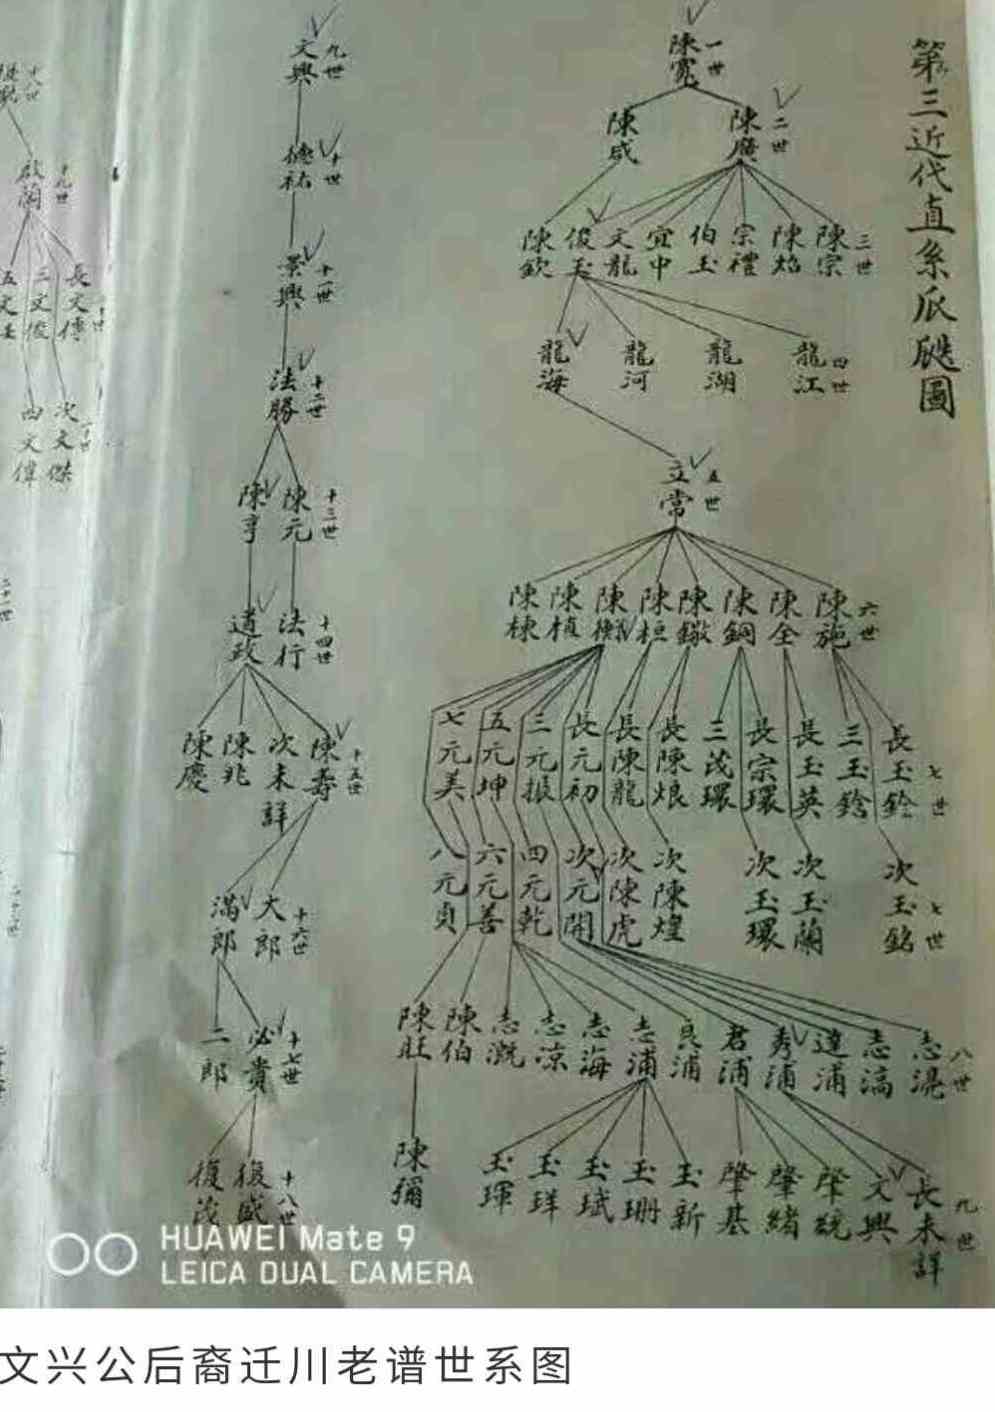 第三近代直系瓜瓞圖
一世
陳寬
二世
陳廣
陳咸
三世
陳宗
陳焰
宗禮
伯玉
宜中
文龍
俊玉
陳欽
四世
龍江
龍湖
龍河
龍海
五世
立常
六世
陳施
陳全
陳銅
陳鐓
陳桓
陳
陳楨
陳棟
七世
長玉銓
三玉
長玉英
長宗環
三茂環
長陳烺
長陳龍
長元初
三元振
五元坤
七元美
七世
次玉銘
次玉蘭
次玉環
次陳煌
次陳虎
次元開
四元乾
六元善
八元貞
八世
志滉
志滈
達浦
秀浦
君浦
良浦
志浦
志海
志凉
志溉
陳伯
陳旺
九世
長未詳
文興
肇統
肇緒
肇基
玉新
玉珊
玉珷
玉珜
玉琿
陳獼
九世
文興
十世
德祐
十一世
景興
十二世
法勝
十三世
陳元
陳亨
十四世
法行
道政
十五世
陳壽
次未詳
陳兆
陳慶
十六世
大郎
滿郎
十七世
必貴
二郎
十八世
復盛
復茂
十八世
十九世
啟蘭
長文傳
三文俊
五文
次文傑
四文偉
HUAWEI Mate 9
LEICA DUAL CAMERA
文兴公后裔迁川老谱世系图